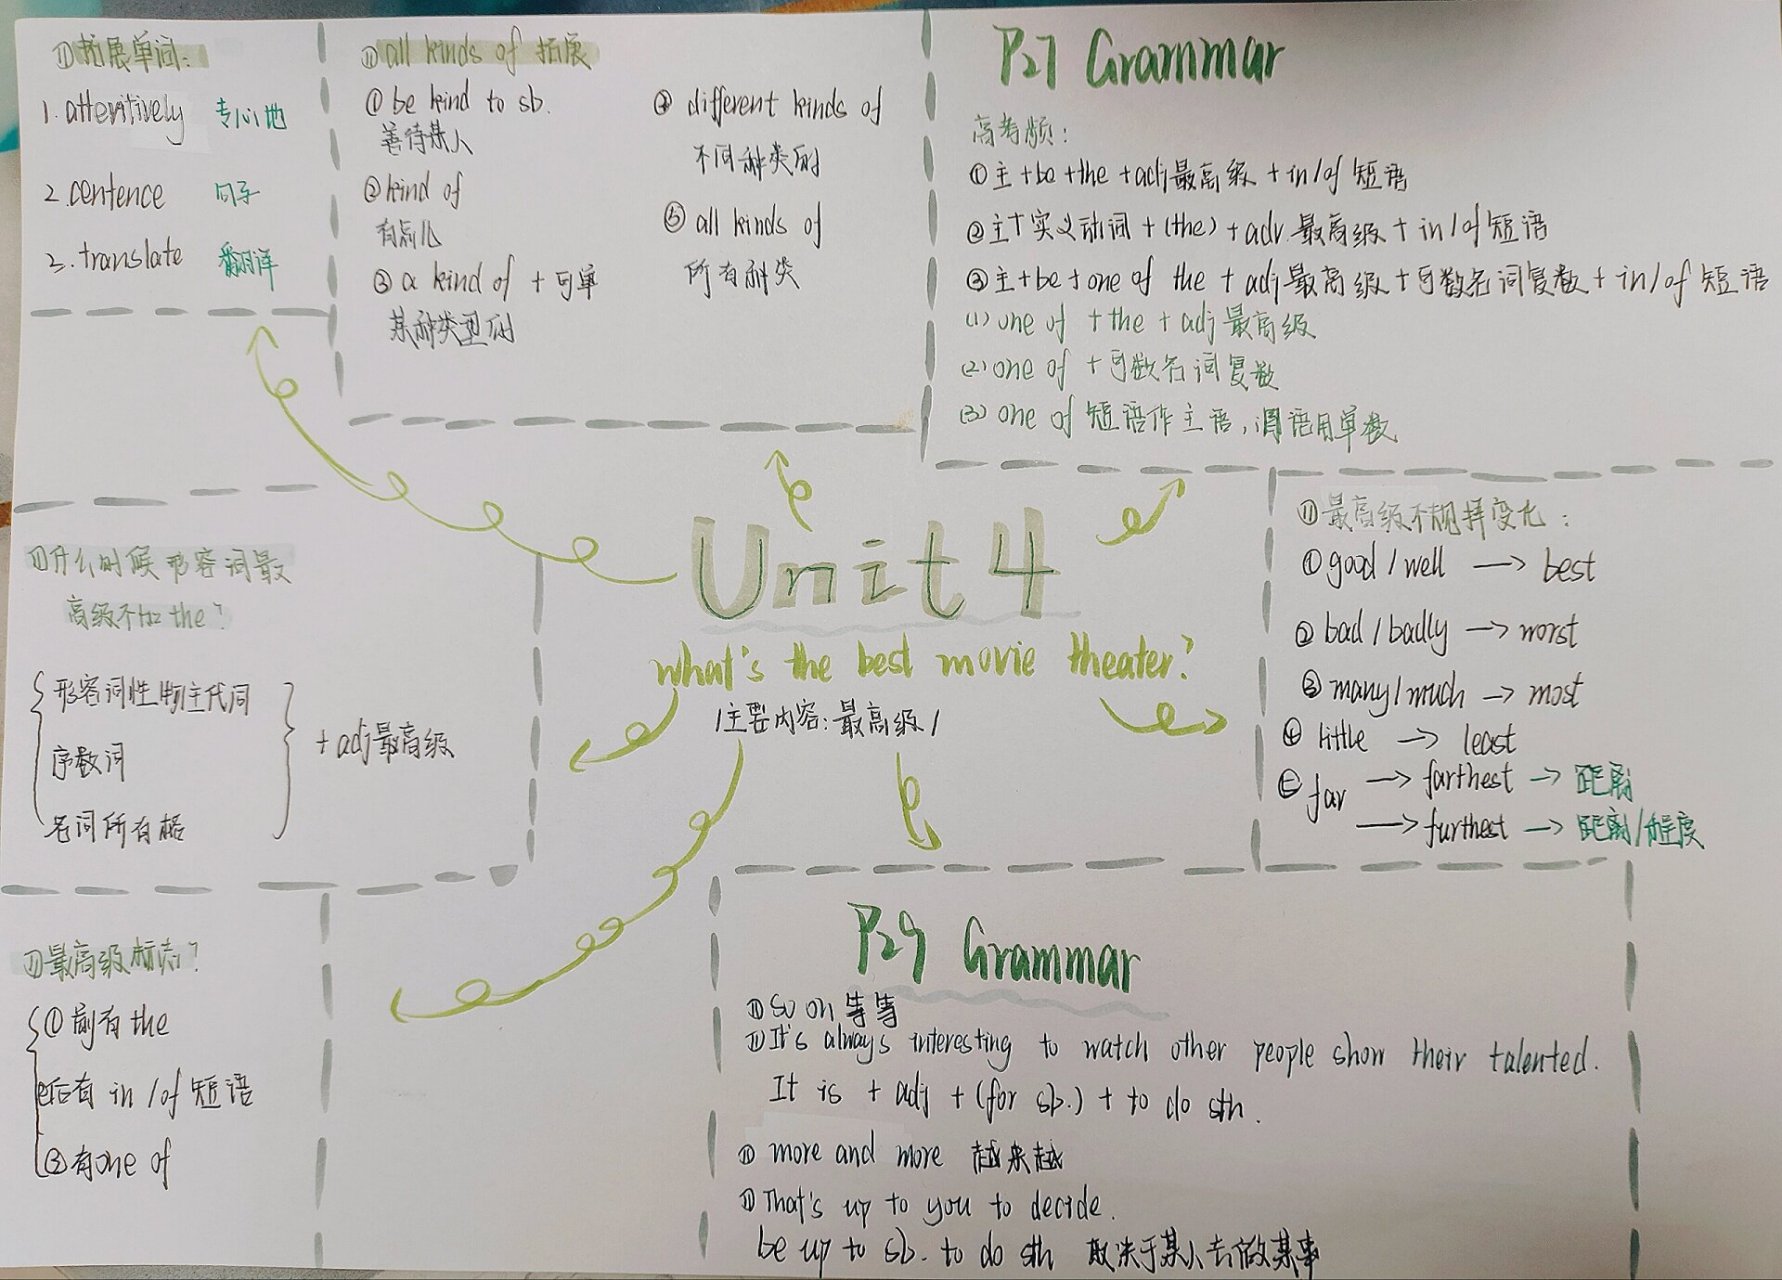 ⑪拓展单词:
1. attentively 专心地
2. centence 句子
3. translate 翻译
⑪all kinds of 拓展
①be kind to sb.
善待某人
②kind of
有点儿
③a kind of + 可单
某种类型的
④different kinds of
不同种类的
⑤all kinds of
所有种类
P27 Grammar
高考频:
①主+be+the+adj最高级+in/of短语
②主+实义动词+(the)+adv.最高级+in/of短语
③主+be+one of the+adj最高级+可数名词复数+in/of短语
(1) one of +the+adj最高级
(2) one of +可数名词复数
(3) one of 短语作主语,谓语用单数
Unit 4
What's the best movie theater?
/主要内容:最高级/
⑪什么时候形容词最
高级不加the?
形容词性物主代词
序数词
名词所有格
+adj最高级
⑪最高级不规则变化:
①good/well → best
②bad/badly → worst
③many/much → most
④little → least
⑤far → farthest → 距离
→ furthest → 距离/程度
⑪最高级标志?
①前有the
②后有in/of短语
③有one of
P29 Grammar
⑪so on 等等
⑪It's always interesting to watch other people show their talented.
It is + adj + (for sb.) + to do sth.
⑪more and more 越来越
⑪That's up to you to decide.
be up to sb. to do sth 取决于某人去做某事